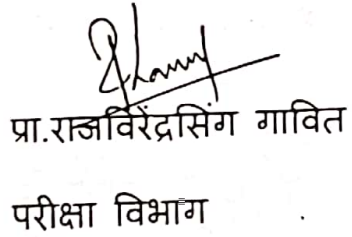 प्रा.राजविरेंद्रसिंग गावित
परीक्षा विभाग